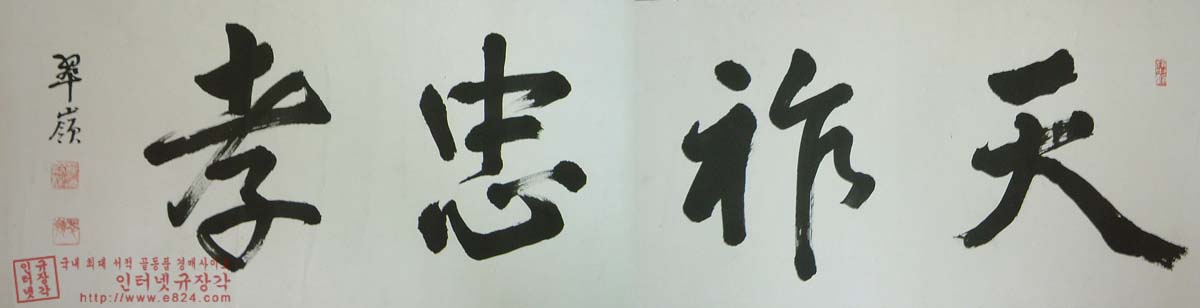 天祚忠孝
翠嶺
인터넷
규장각
국내 최대 서적 골동품 경매사이트
인터넷규장각
http://www.e824.com